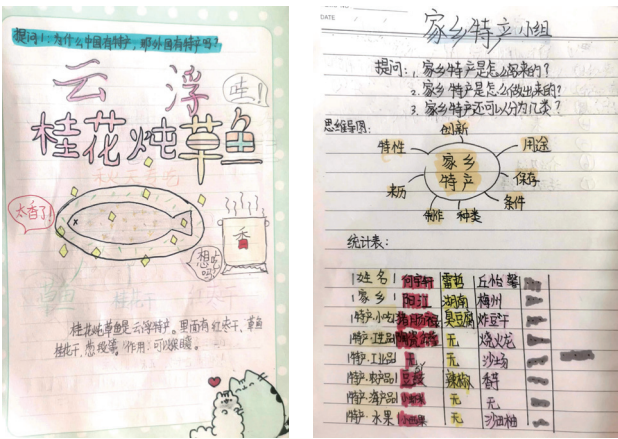 提问1:为什么中国有特产,那外国有特产吗?
云浮
哇!
桂花炖草鱼
太香了!
香
想吃吗?
桂花炖草鱼是云浮特产。里面有红枣干、草鱼
桂花干、葱段等。作用:可以暖
DATE
家乡特产小组
提问:1.家乡特产是怎么来的?
2.家乡特产是怎么做出来的?
3.家乡特产还可以分为几类?
思维导图:
创新
特性
用途
家乡
特产
保存
来历
条件
制作
种类
统计表:
姓名 何宇轩 雷哲 丘怡馨
家乡 阳江 湖南 梅州
特产小吃 猪肠碌 臭豆腐 炸豆干
特产工艺品 无 烧火龙
特产工业品 无 无
特产农产品 豆豉 辣椒
特产海产品 无 无
特产水果 无 沙田柚